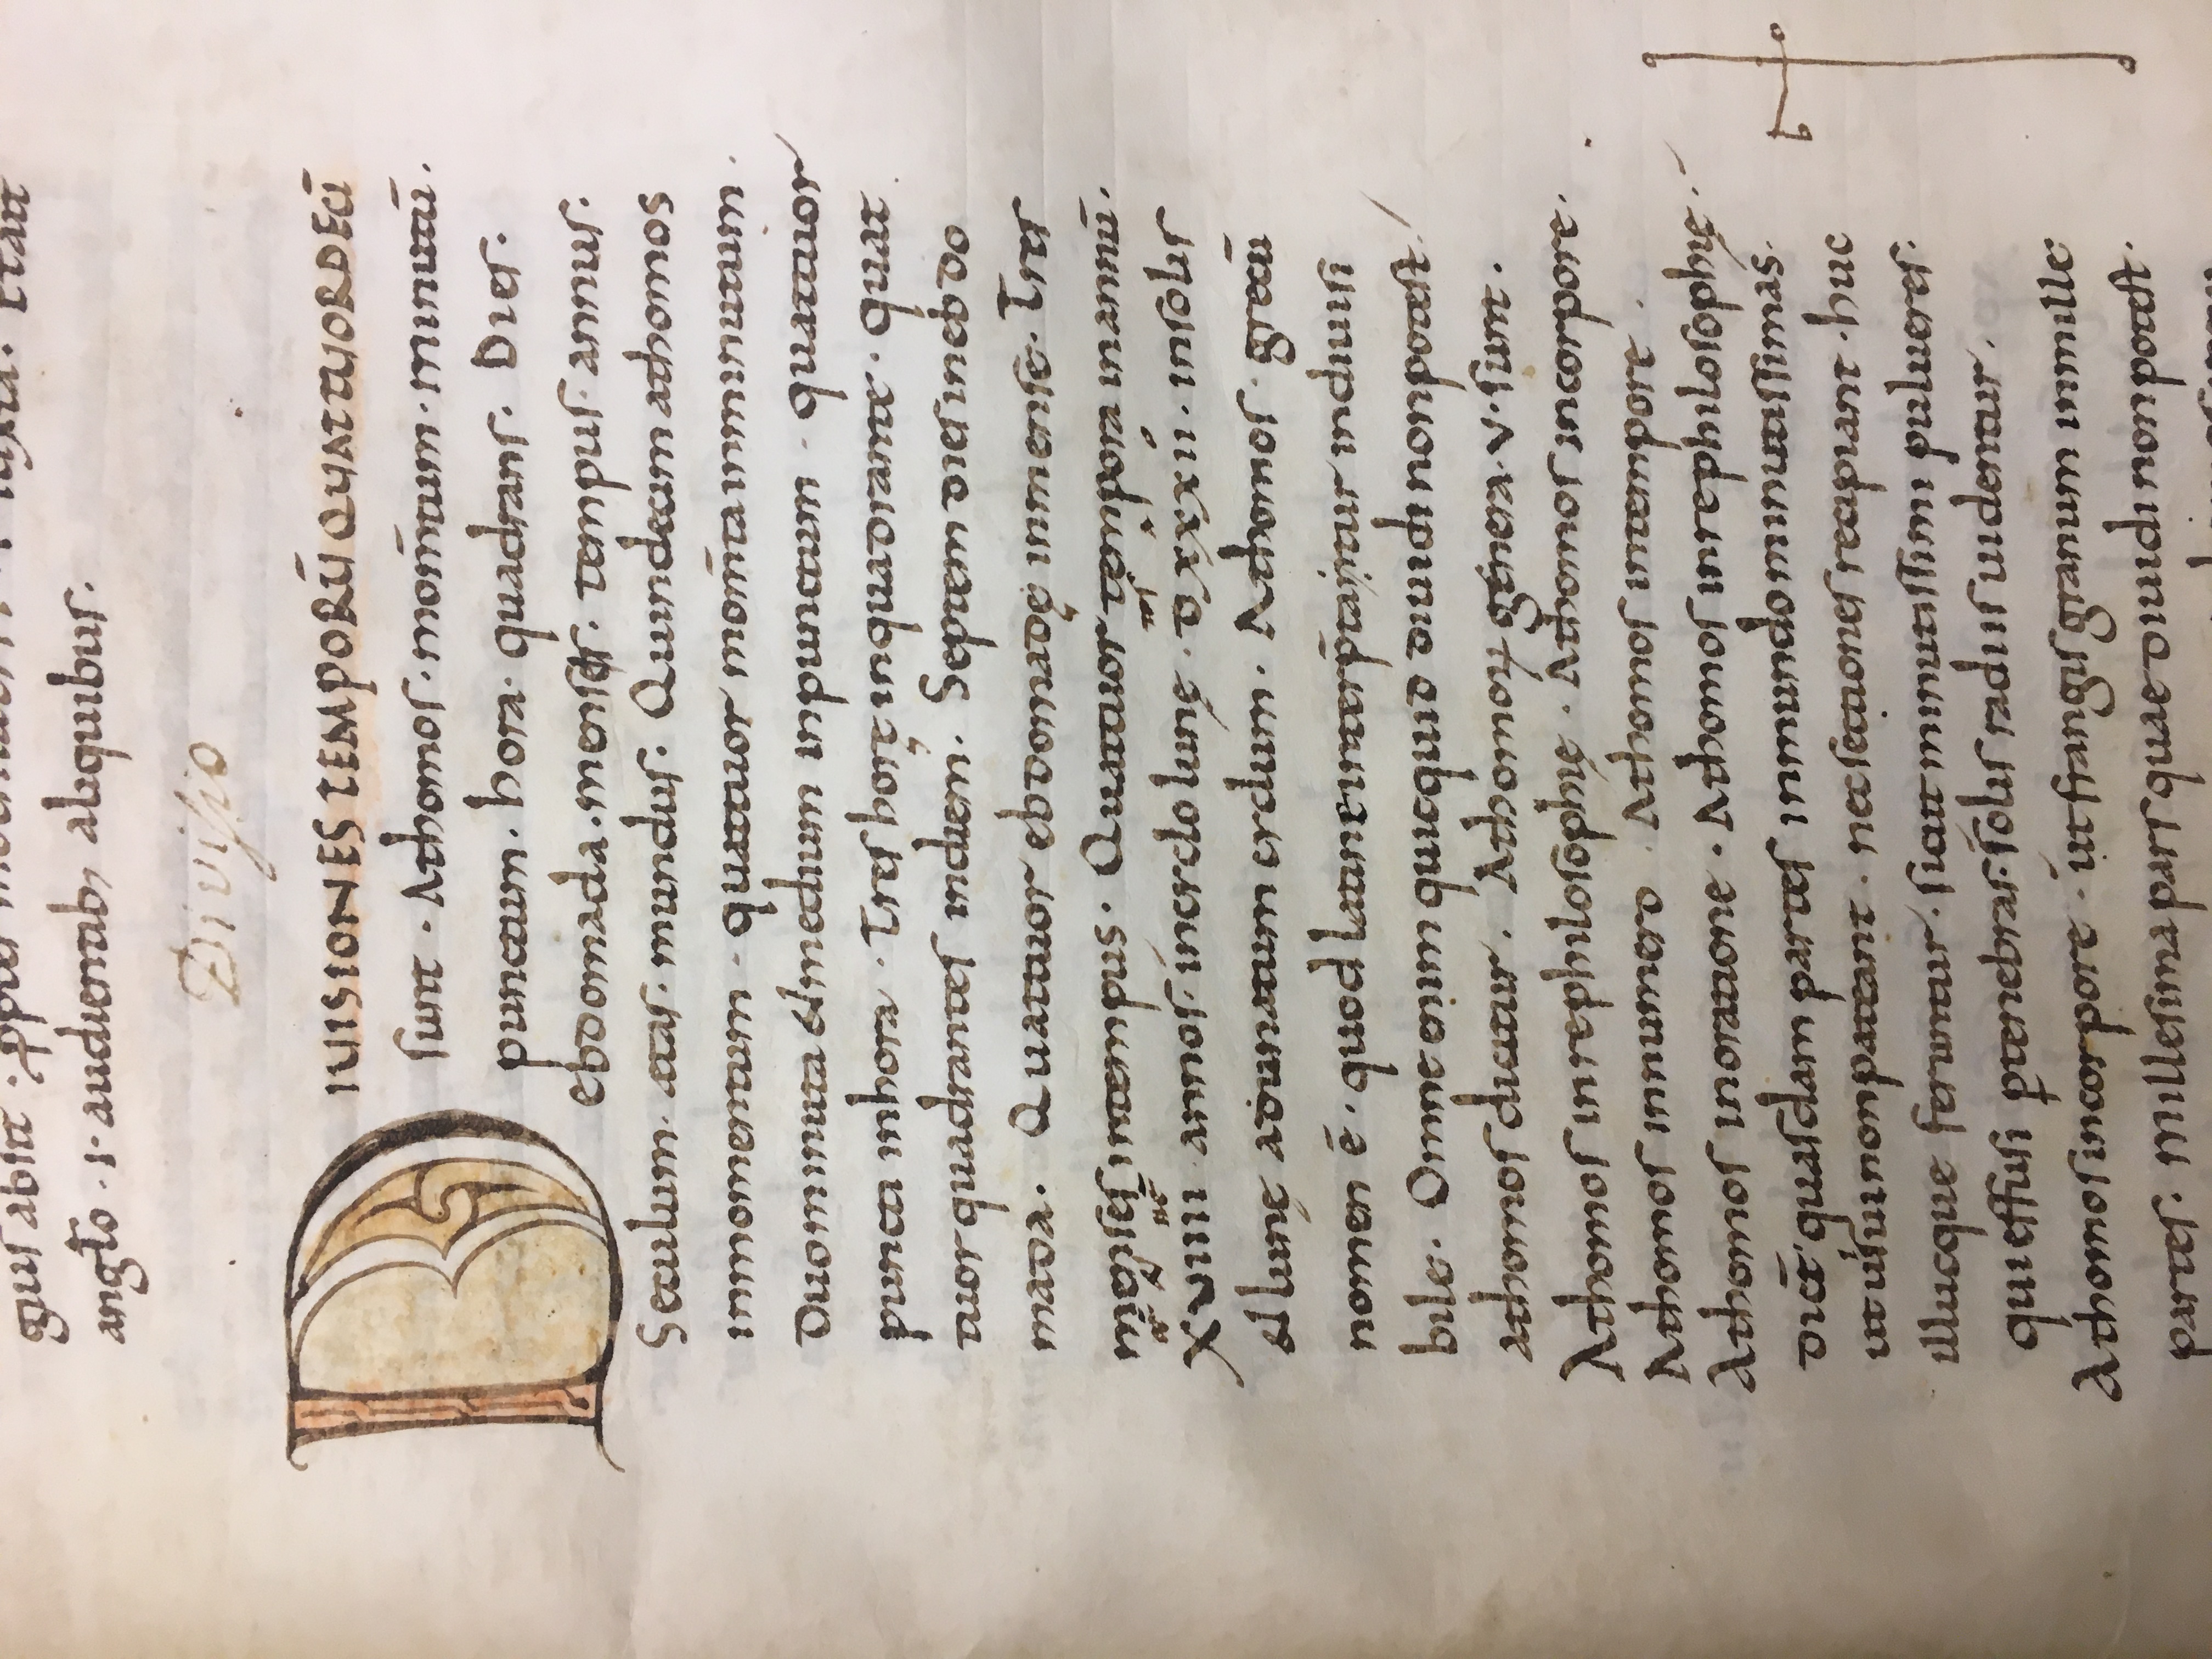 gus absit · ꝓpter
anglo · i · audientab; alequibus.
Divisio
DIUISIONES TEMPORŪ QUATTUORDECĪ
sunt · Athomos · momtum · minutū ·
punctum · hora · quadrans · Dies ·
ebdomada · mensis · tempus · annus ·
Seculum · etas · mundus · Quindecim athomos
inmomentum · quattuor momta inminutum ·
Duo minuta & medium inpunctum · quattuor
puncta inhora · Tres horę inquadrante · quat
tuor quadrantes indiem · Septem dies inebdo
mada · Quattuor ebdomadę inmense · Tres
menses intempus · Quattuor tempora inannū ·
Xuiiii · annos · incyclo lunę · dxxxii · insolis
& lunę adunatum cyclum · Athomos · grecū
nomen ē · quod latine interp̄taītur indiuisi
bile · Omne enim quicquid diuidi nonpotest
athomos dicitur · Athomoꝝ genera · v · sunt ·
Athomos inre philosophię · Athomos incorpore ·
Athomos innumero · Athomos intempore ·
Athomos inoratione · Athomos inrephilosophię ·
dicīt quasdam partes inmundo minutissimas ·
ut uisui nonpateant · nec sectiones recipiant · huc
illucque feruntur · sicut minutissimi pulueres ·
qui effusi p tenebras · solis radiis uidentur ·
Athomos incorpore · ut frangis granum inmille
partes · Millesima pars quae diuidi nonpotest ·